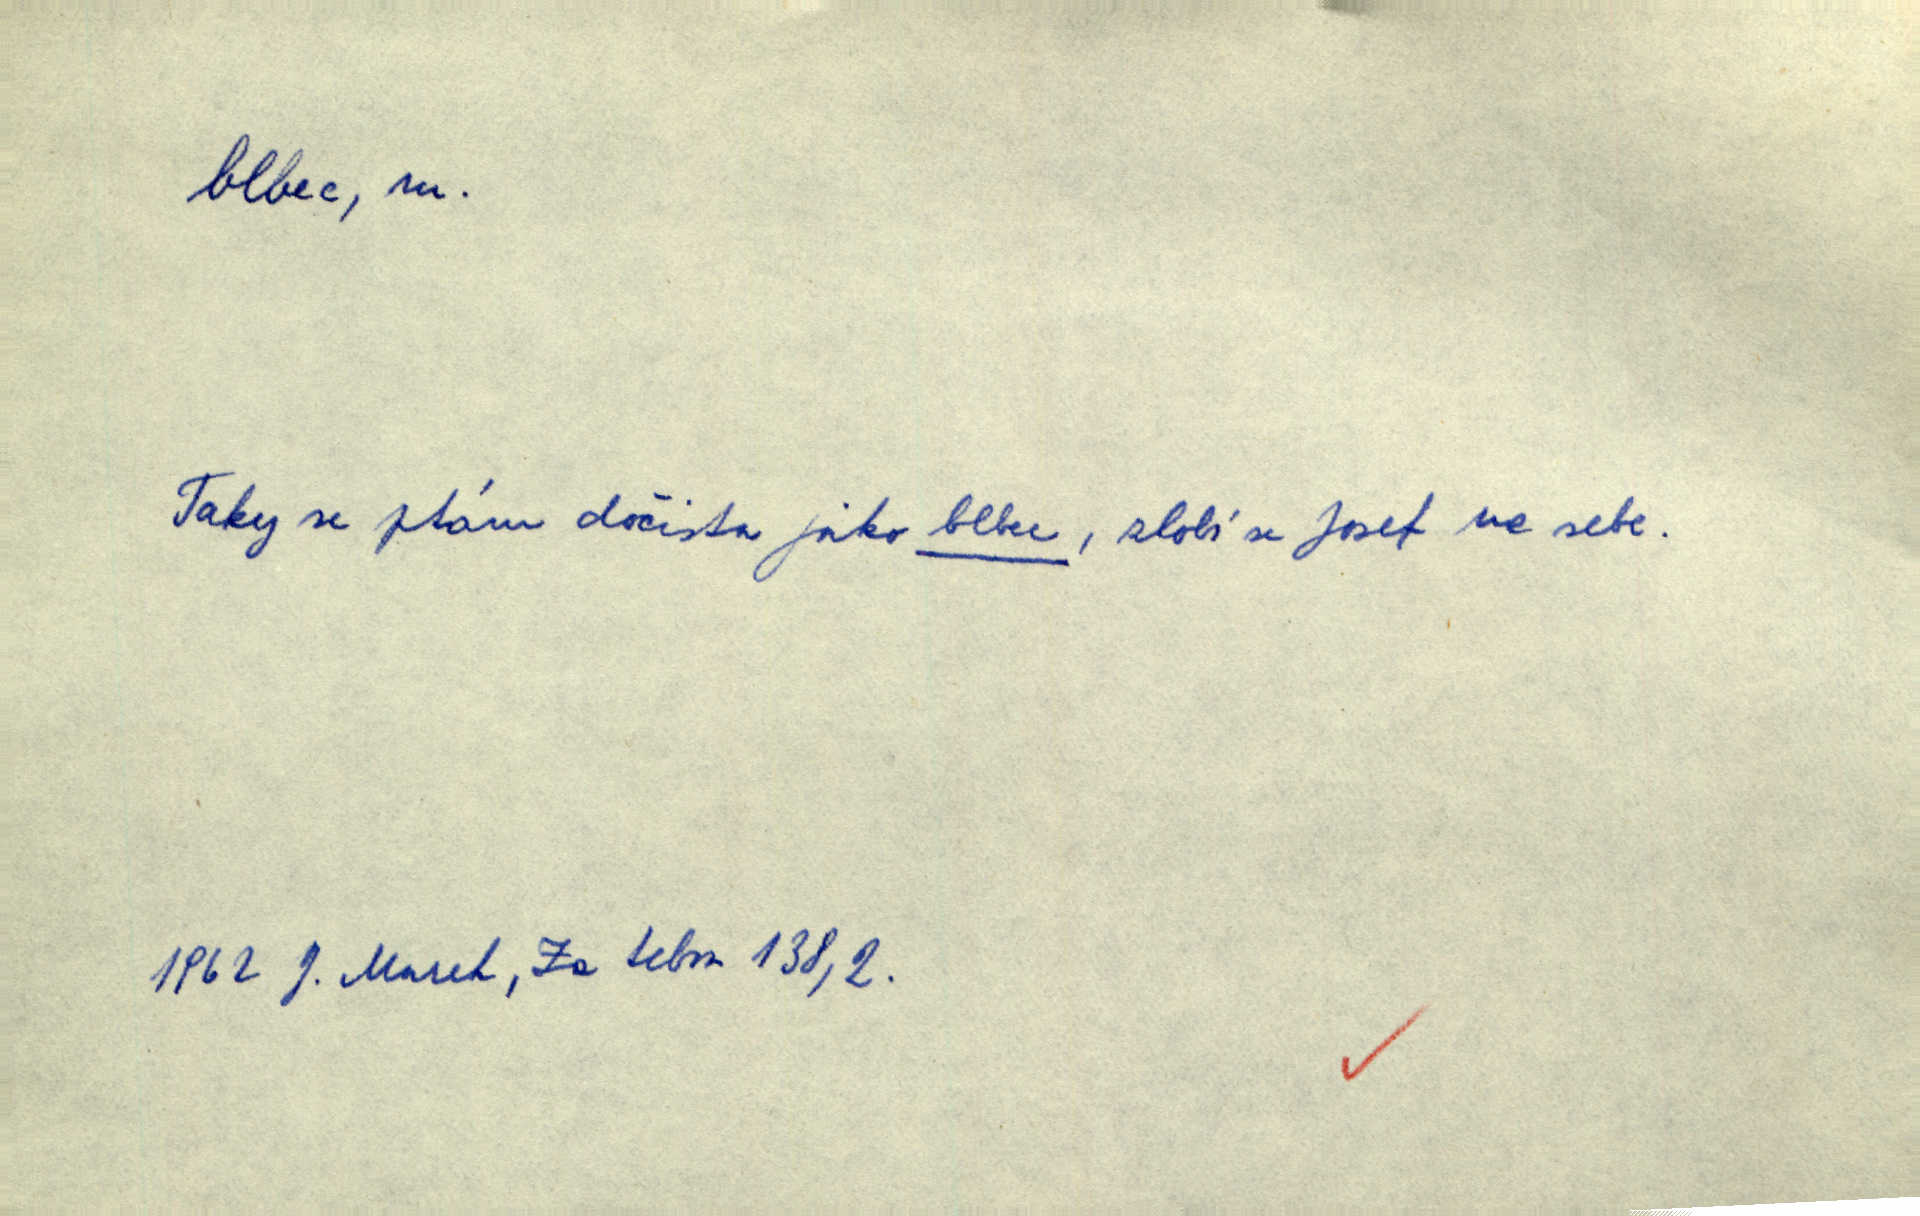 blbec, m.
Taky se ptám dočista jako blbec, zlobí se Josef na sebe.
1962 J. Marek, Za tebou 138,2.